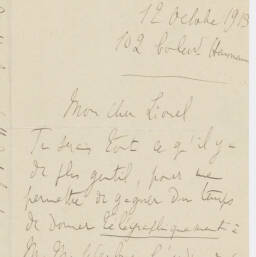 12 octobre 1913
102 boulevd Haussmann
Mon cher Lionel
Tu serais tout ce qu'il y a
de plus gentil, pour me
permettre de gagner du temps
de donner télégraphiquement à